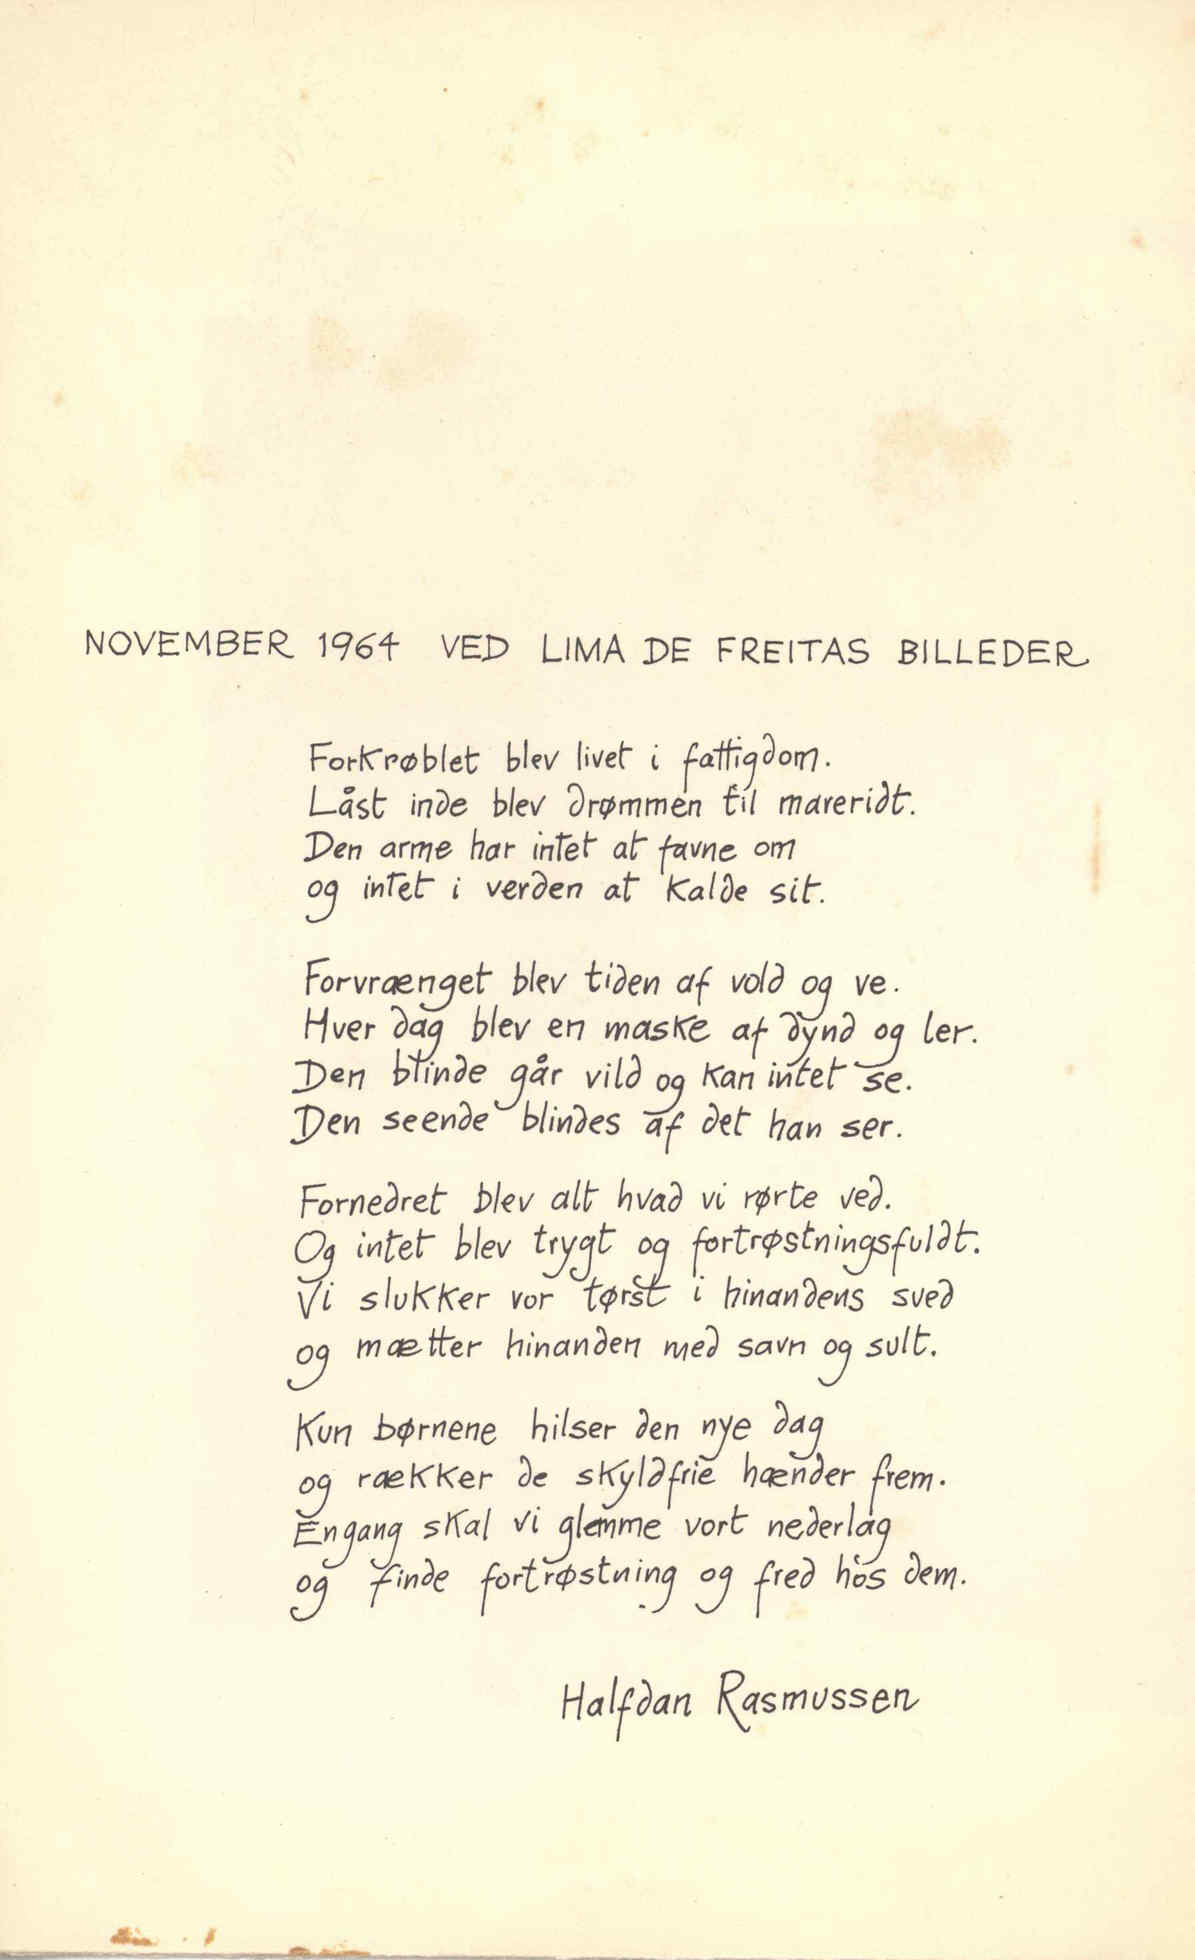 NOVEMBER 1964 VED LIMA DE FREITAS BILLEDER
Forkrøblet blev livet i fattigdom.
Låst inde blev drømmen til mareridt.
Den arme har intet at favne om
og intet i verden at kalde sit.
Forvrænget blev tiden af vold og ve.
Hver dag blev en maske af dynd og ler.
Den blinde går vild og kan intet se.
Den seende blindes af det han ser.
Fornedret blev alt hvad vi rørte ved.
Og intet blev trygt og fortrøstningsfuldt.
Vi slukker vor tørst i hinandens sved
og mætter hinanden med savn og sult.
Kun børnene hilser den nye dag
og rækker de skyldfrie hænder frem.
Engang skal vi glemme vort nederlag
og finde fortrøstning og fred hos dem.
Halfdan Rasmussen